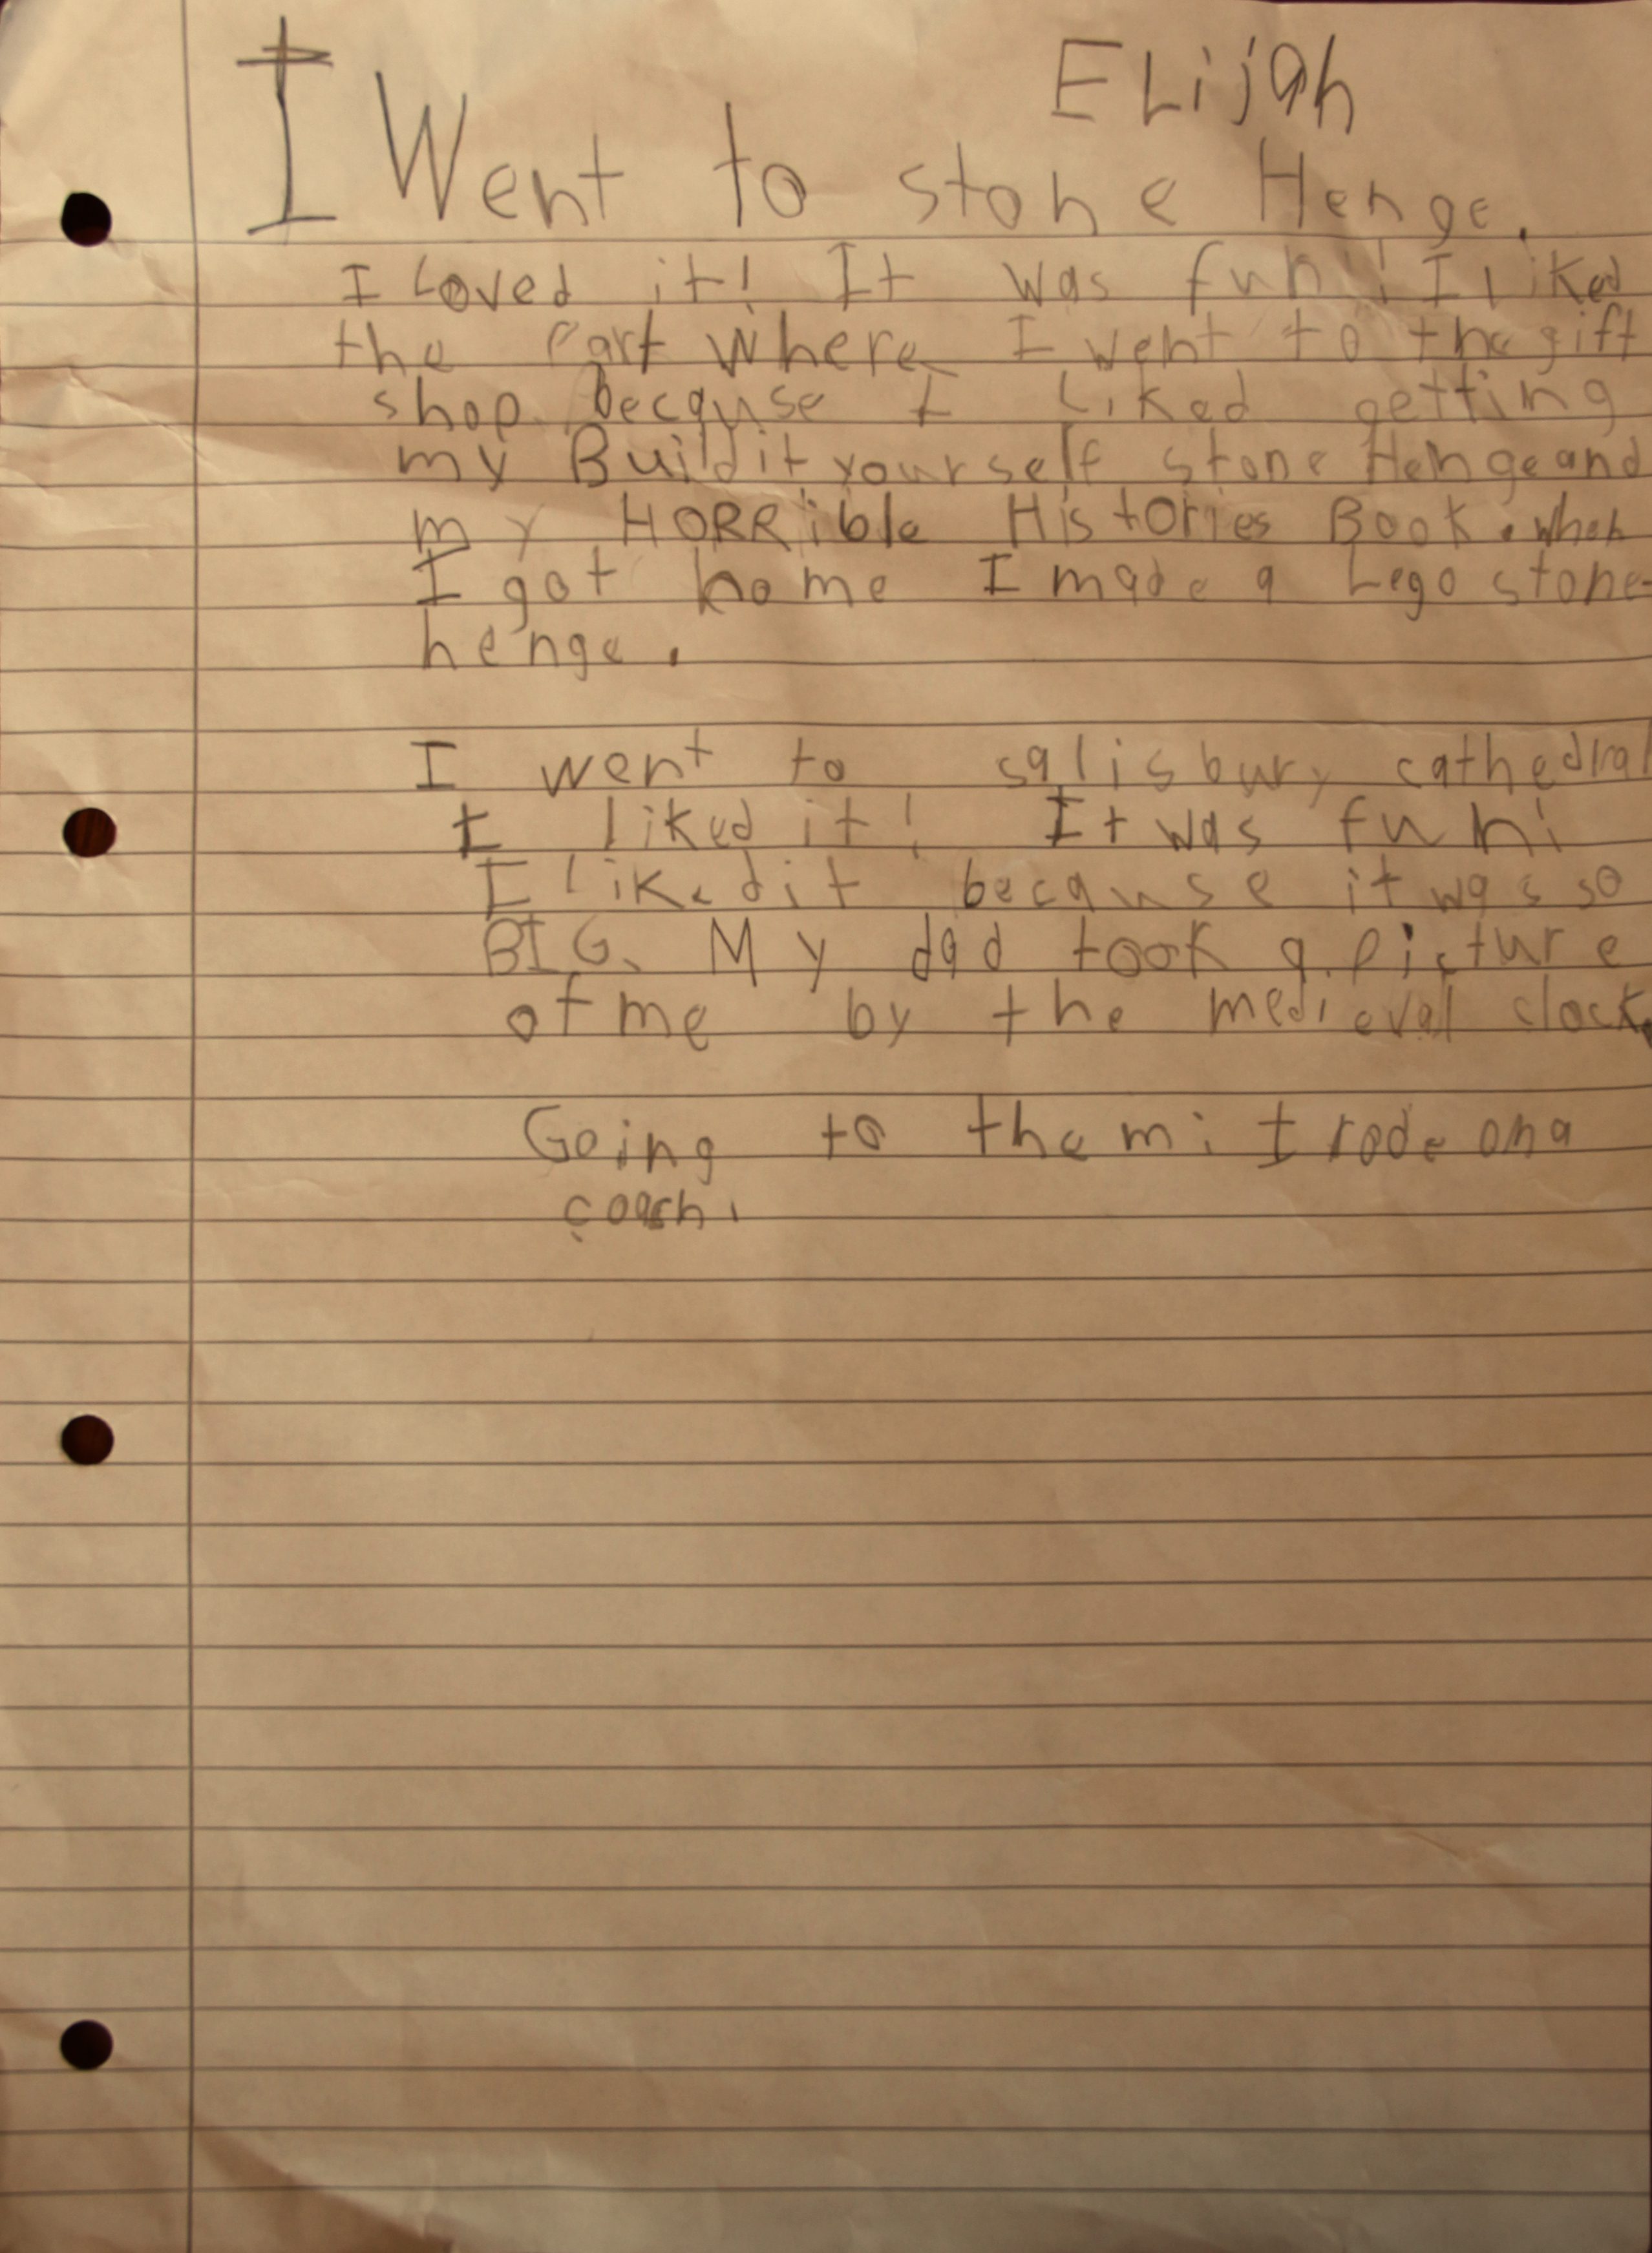 ELijah
I Went to stone Henge.
I Loved it! It was fun!! I liked
the part where I went to the gift
shop because I Liked getting
my Build it yourself stone Henge and
my HORRible HisTOries Book. when
I got home I made a Lego stone-
henge.
I went to salisbury cathedral
I liked it! It was fun!
I liked it because it was so
BIG. My dad took a picture
of me by the medieval clock.
Going to them: I rode on a
coach.